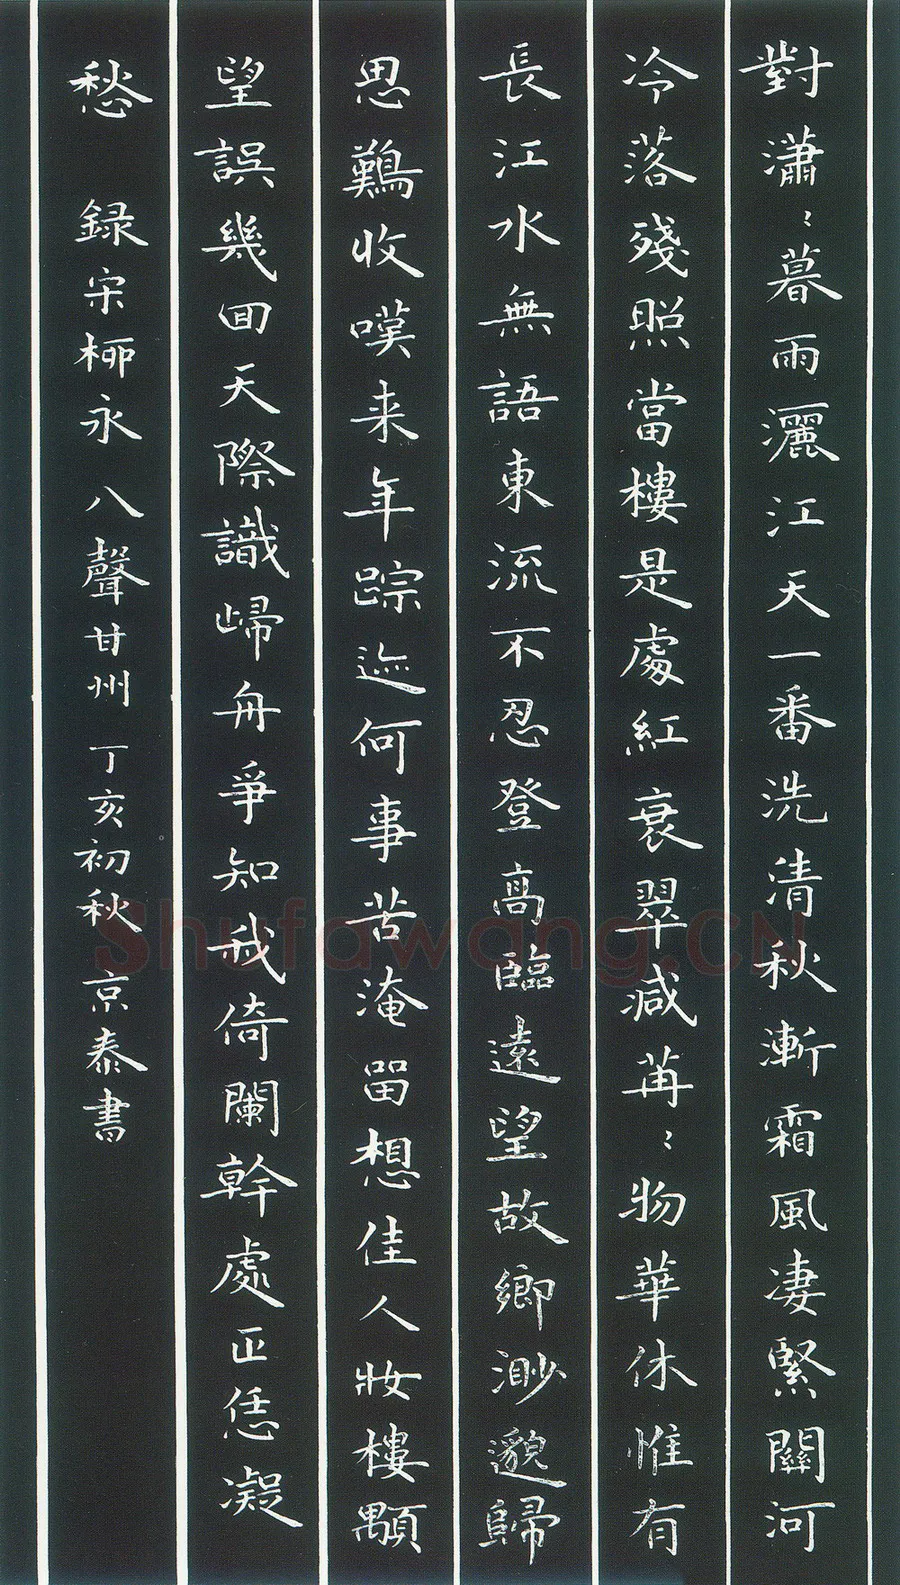 對瀟：暮雨灑江天一番洗清秋漸霜風凄緊關河
冷落殘照當樓是處紅衰翠減苒：物華休惟有
長江水無語東流不忍登高臨遠望故鄉渺邈歸
思難收嘆来年踪迹何事苦淹留想佳人妝樓顒
望誤幾回天際識歸舟爭知我倚闌幹處正恁凝
愁 録宋柳永八聲甘州丁亥初秋京泰書
Shufawang.CN